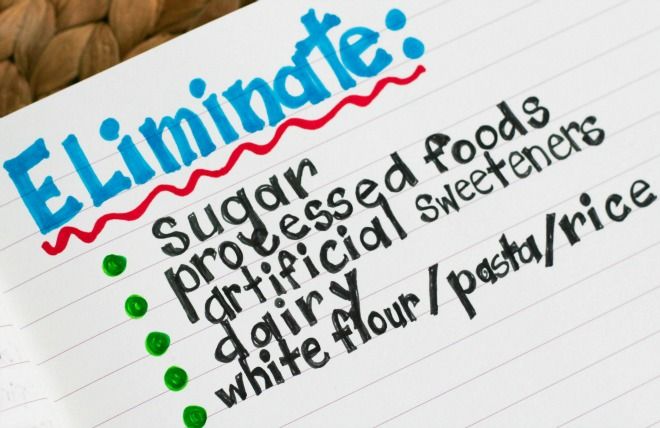 ELiminate:
sugar
processed foods
artificial sweeteners
dairy
white flour/pasta/rice